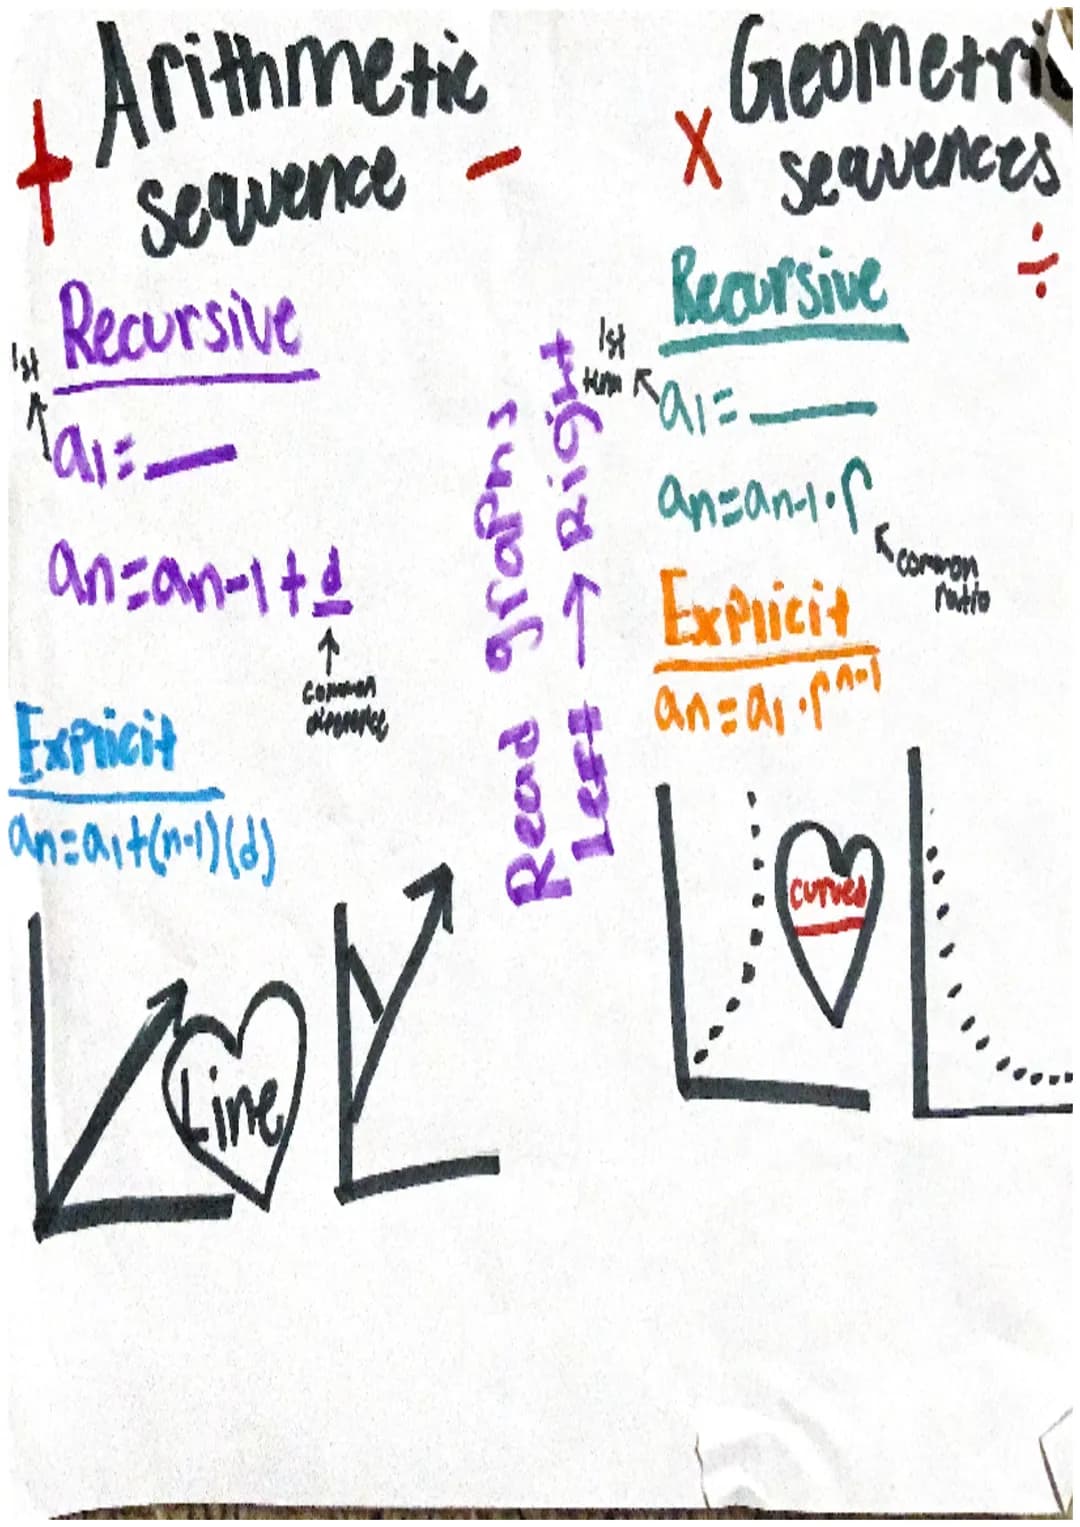 Arithmetic
sequence
+
−
Recursive
1st
a1=___
an=an-1+d
common
difference
Explicit
an=a1+(n-1)(d)
Line
Read graphs
Left → Right
Geometri
sequences
x
÷
Recursive
1st
term
a1=___
an=an-1·r
common
ratio
Explicit
an=a1·r^n-1
curved